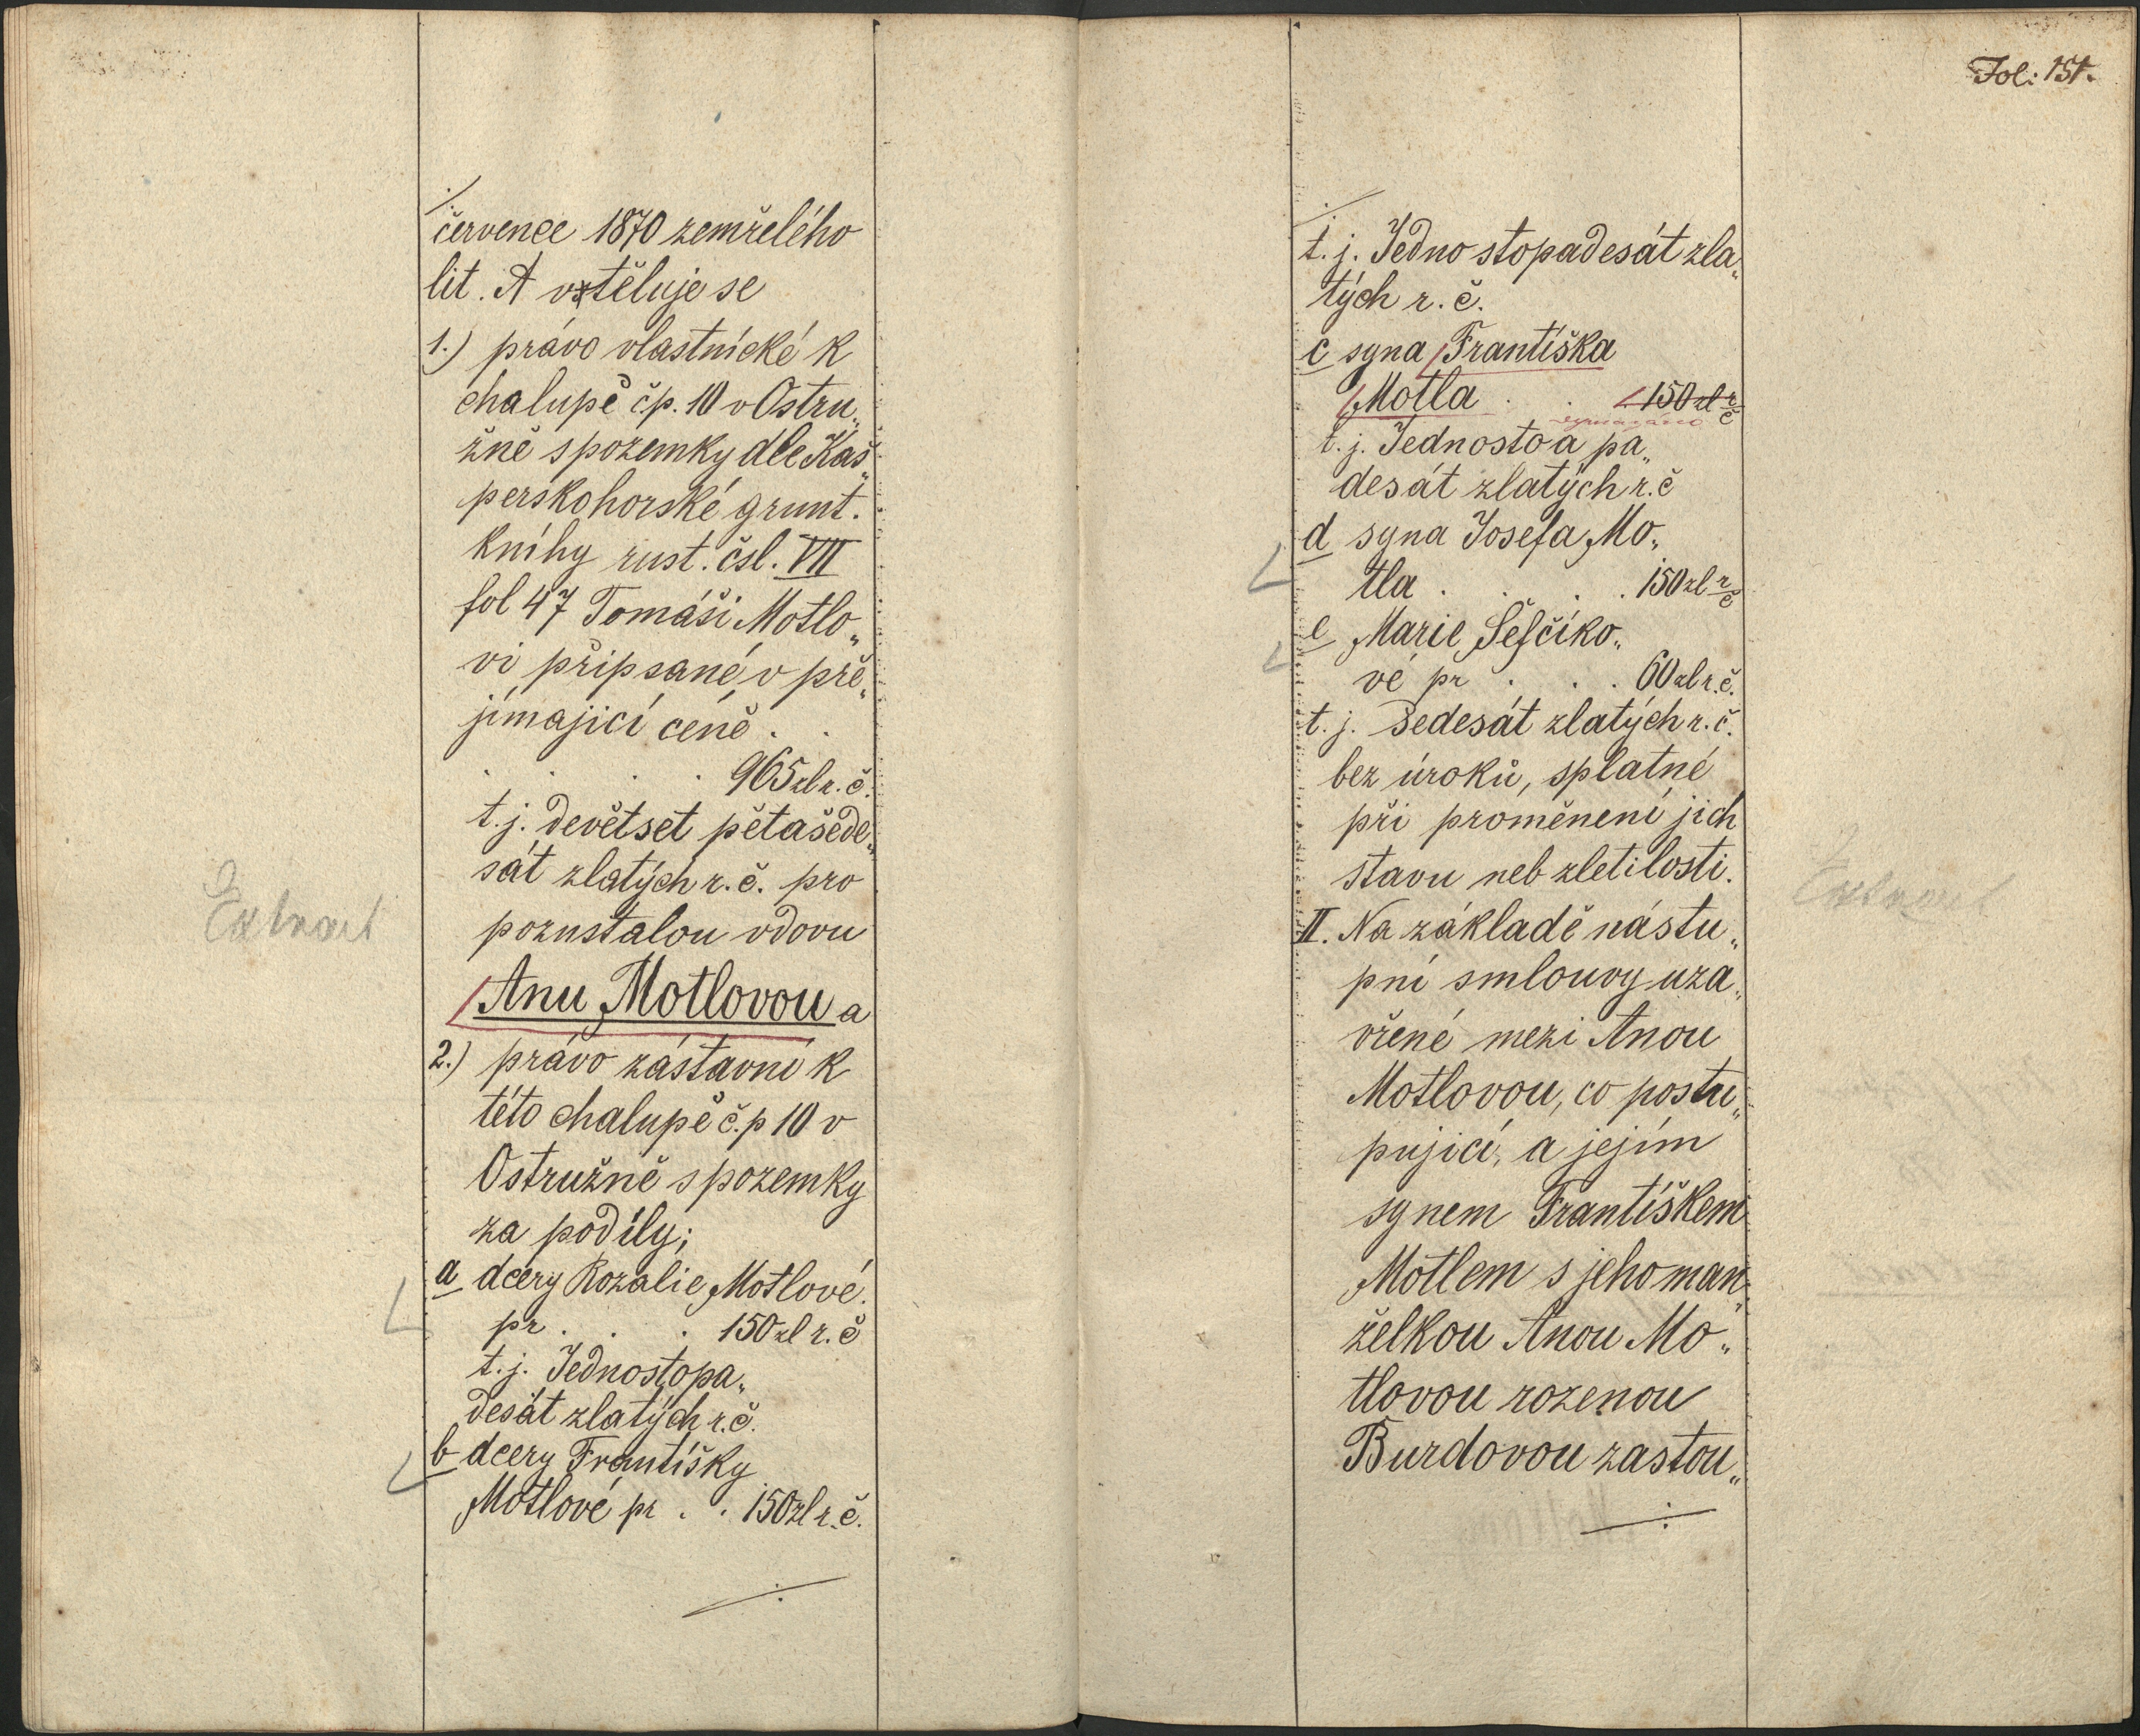 ./.
července 1870 zemřelého
lit. A vtěluje se
1.) právo vlastnické k
chalupě č.p. 10 v Ostru„
žně s pozemky dle Kaš„
perskohorské grunt.
knihy rust. čsl. VII
fol 47 Tomáši Motlo„
vi připsané v pře„
jímající ceně . .
. . . . 965 zl r. č.
t. j. devětset pětašede„
sát zlatých r. č. pro
pozustalou vdovu
Anu Motlovou a
2.) právo zástavní k
této chalupě č.p 10 v
Ostružně s pozemky
za podíly;
a dcery Rozalie Motlové
pr . . . 150 zl r. č
t. j. Jednostopa„
desát zlatých r. č.
b dcery Františky
Motlové pr . . 150 zl r. č.
./.
Extract
Fol: 151.
./.
t. j. Jedno stopadesát zla„
tých r. č.
c syna Františka
Motla . . 150 zl r č
vymazáno
t. j. Jednosto a pa„
desát zlatých r. č
d syna Josefa Mo„
tla . . . . 150 zl r č
e Marie Šefčíko„
vé pr . . . 60 zl r. č.
t. j. šedesát zlatých r. č.
bez úroků, splatné
při proměnení jich
stavu neb zletilosti.
II. Na základě nástu„
pní smlouvy uza„
vřené mezi Anou
Motlovou, co postu„
pující, a jejím
synem Františkem
Motlem s jeho man„
želkou Anou Mo„
tlovou rozenou
Burdovou zastou„
./.
Extract